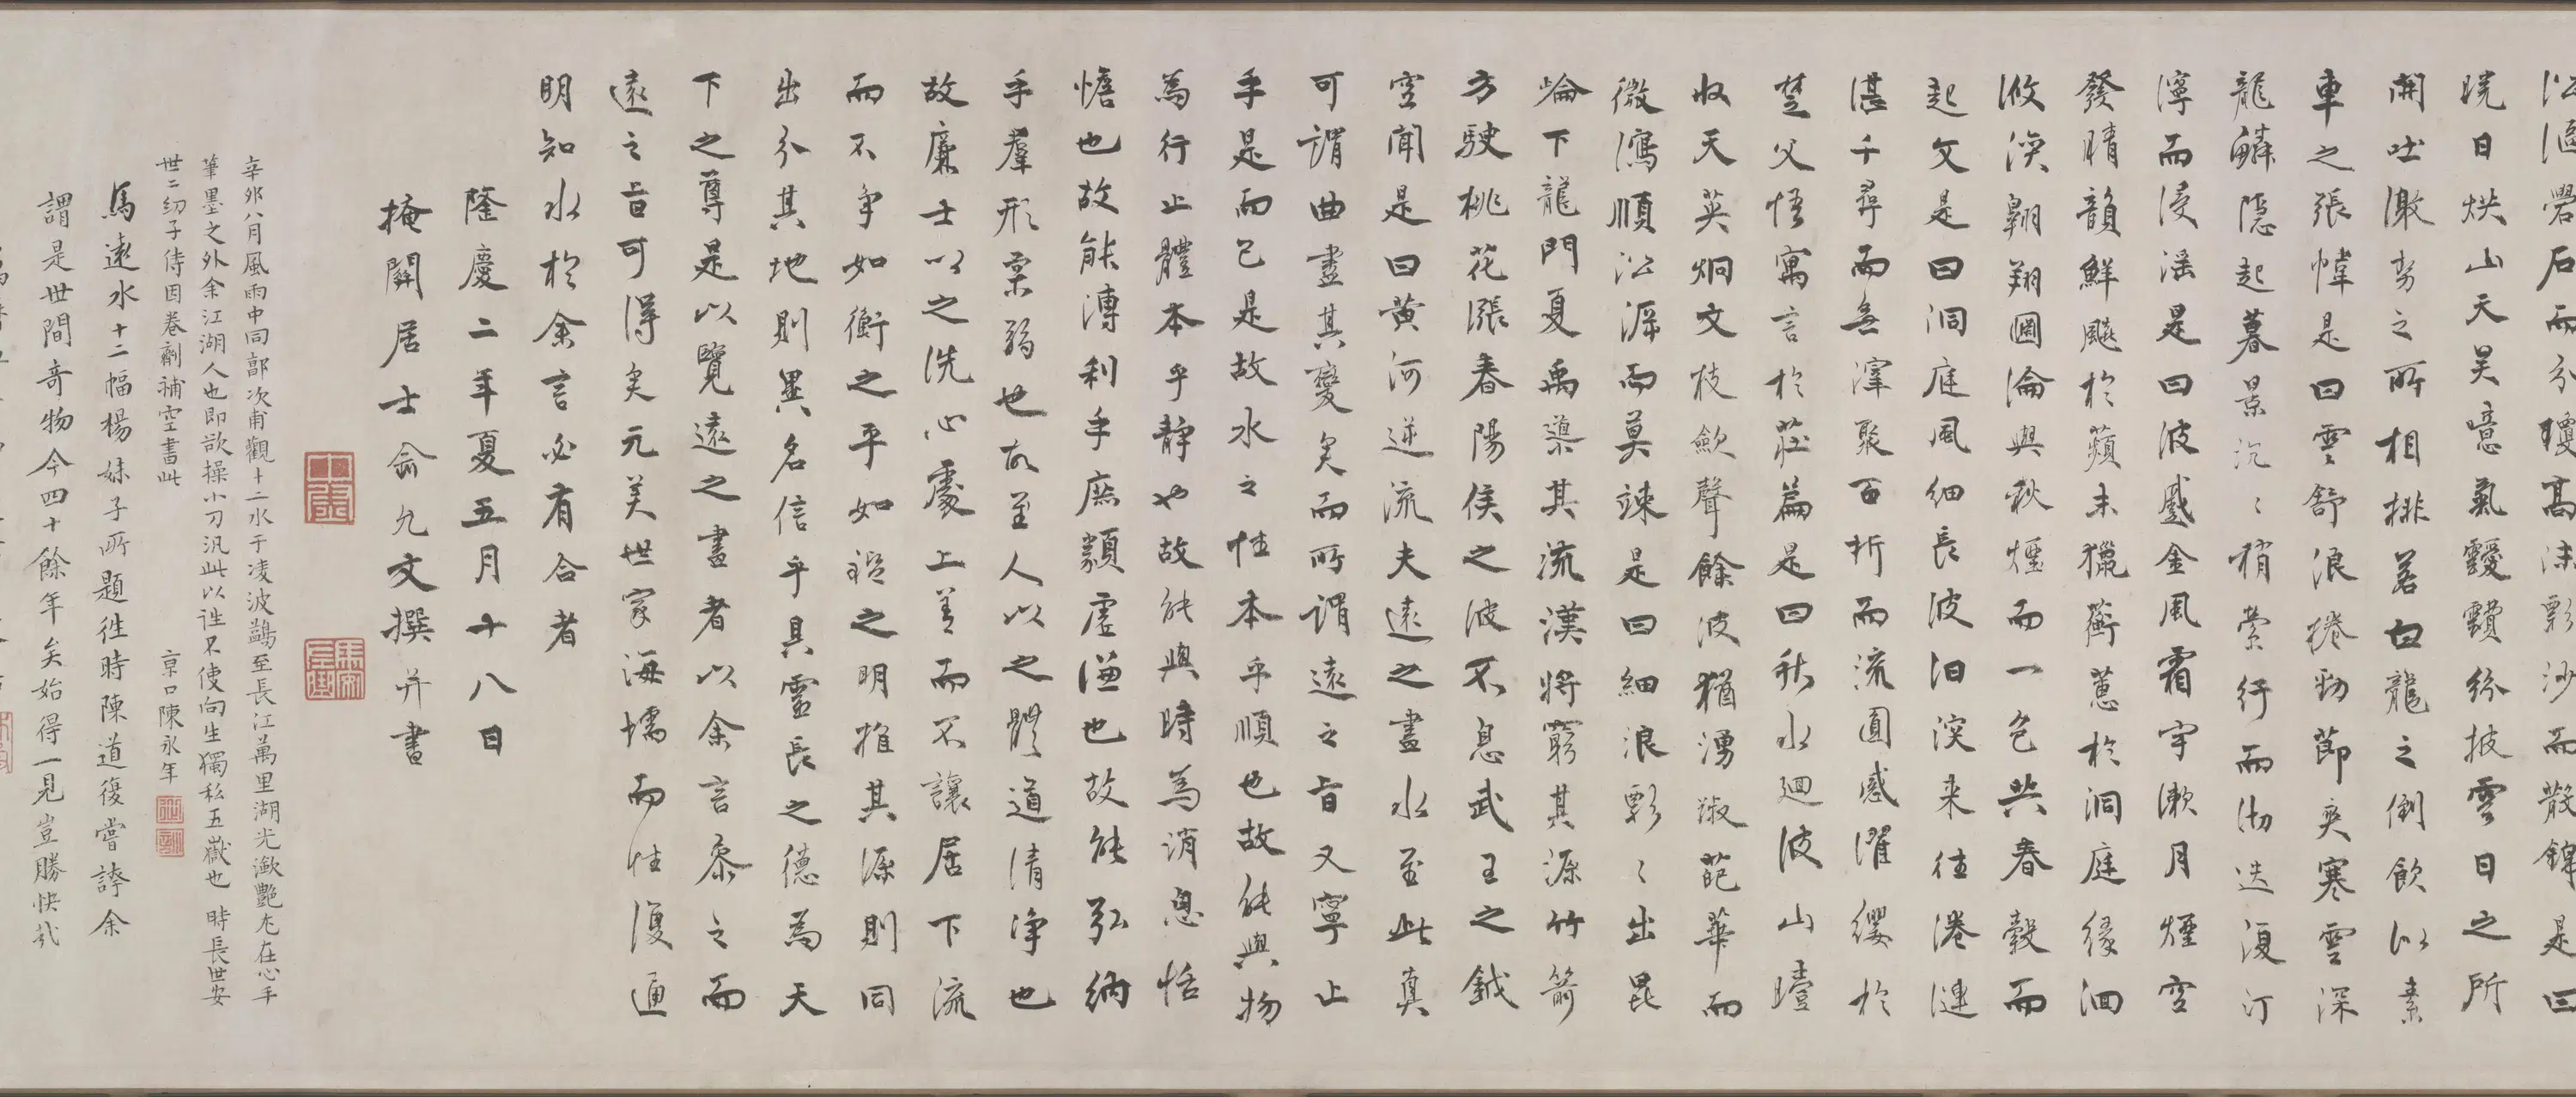 而分瓊高沫彩沙而散錦是曰
曉日烘山天吴噫氣靉靅紛披雲日之所
開吐潄勢之所相排若白龍之倒飲以素
車之張幃是曰雲舒浪捲勁節爽寒雲深
龍鱗隱起暮景沉〻稍縈行而沕迭復汀
濘而浸滛是曰波蹙金風霜宇漱月煙空
發晴韻鮮飈於蘋末獵蘅蕙於洞庭緣洄
攸渙翱翔圓淪與秋煙而一色共春縠而
起文是曰洞庭風細長波汩㴾来往淹漣
湛千尋而無滓聚百折而流圓感濯纓於
楚父悟寓言於莊篇是曰秋水廻波山曀
收天英炯文枝歛聲餘波猶湧潊葩華而
微瀉順㳂漘而莫竦是曰細浪彩〻出昆
崘下龍門夏禹導其流漢將窮其源竹箭
方駛桃花漲春陽侯之波不息武王之鉞
空聞是曰黄河逆流夫遠之畫水至此真
可謂曲盡其變矣而所謂遠之旨又寧止
乎是而已是故水之性本乎順也故能與物
為行止體本乎静也故能與時為消息恬
憺也故能漙利乎庶類虚濂也故能弘納
乎羣形柔弱也故至人以之體道清净也
故廉士以之洗心處上善而不讓居下流
而不争如衡之平如鑑之明推其源則同
出分其地則異名信乎具靈長之德為天
下之尊是以覽遠之畫者以余言叅之而
遠之旨可得矣元美世家海壖而性復通
明知水於余言必有合者
隆慶二年夏五月十八日
掩關居士俞允文撰并書
辛卯八月風雨中同鄗次甫觀十二水于凌波鷁至長江萬里湖光瀲灧尤在心手
筆墨之外余江湖人也即欲操小刀汎此以誰不使向生獨私五嶽也 時長世安
世二幼子侍因卷劑補空書此 京口陳永年
馬遠水十二幅楊妹子所題徃時陳道復嘗誇余
謂是世間奇物今四十餘年矣始得一見豈勝快哉